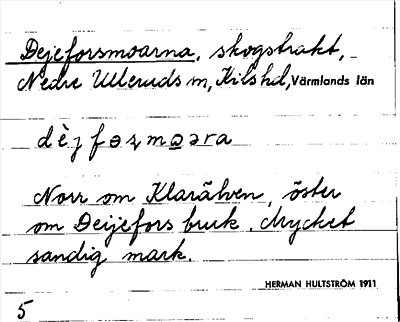 Dejeforsmoarna, skogstrakt,
Nedre Ulleruds sn, Kils hd, Värmlands län
dèjfo̱ʂmo̱ara
Norr om Klarälven, öster
om Dejefors bruk. Mycket
sandig mark.
HERMAN HULTSTRÖM 1911
5